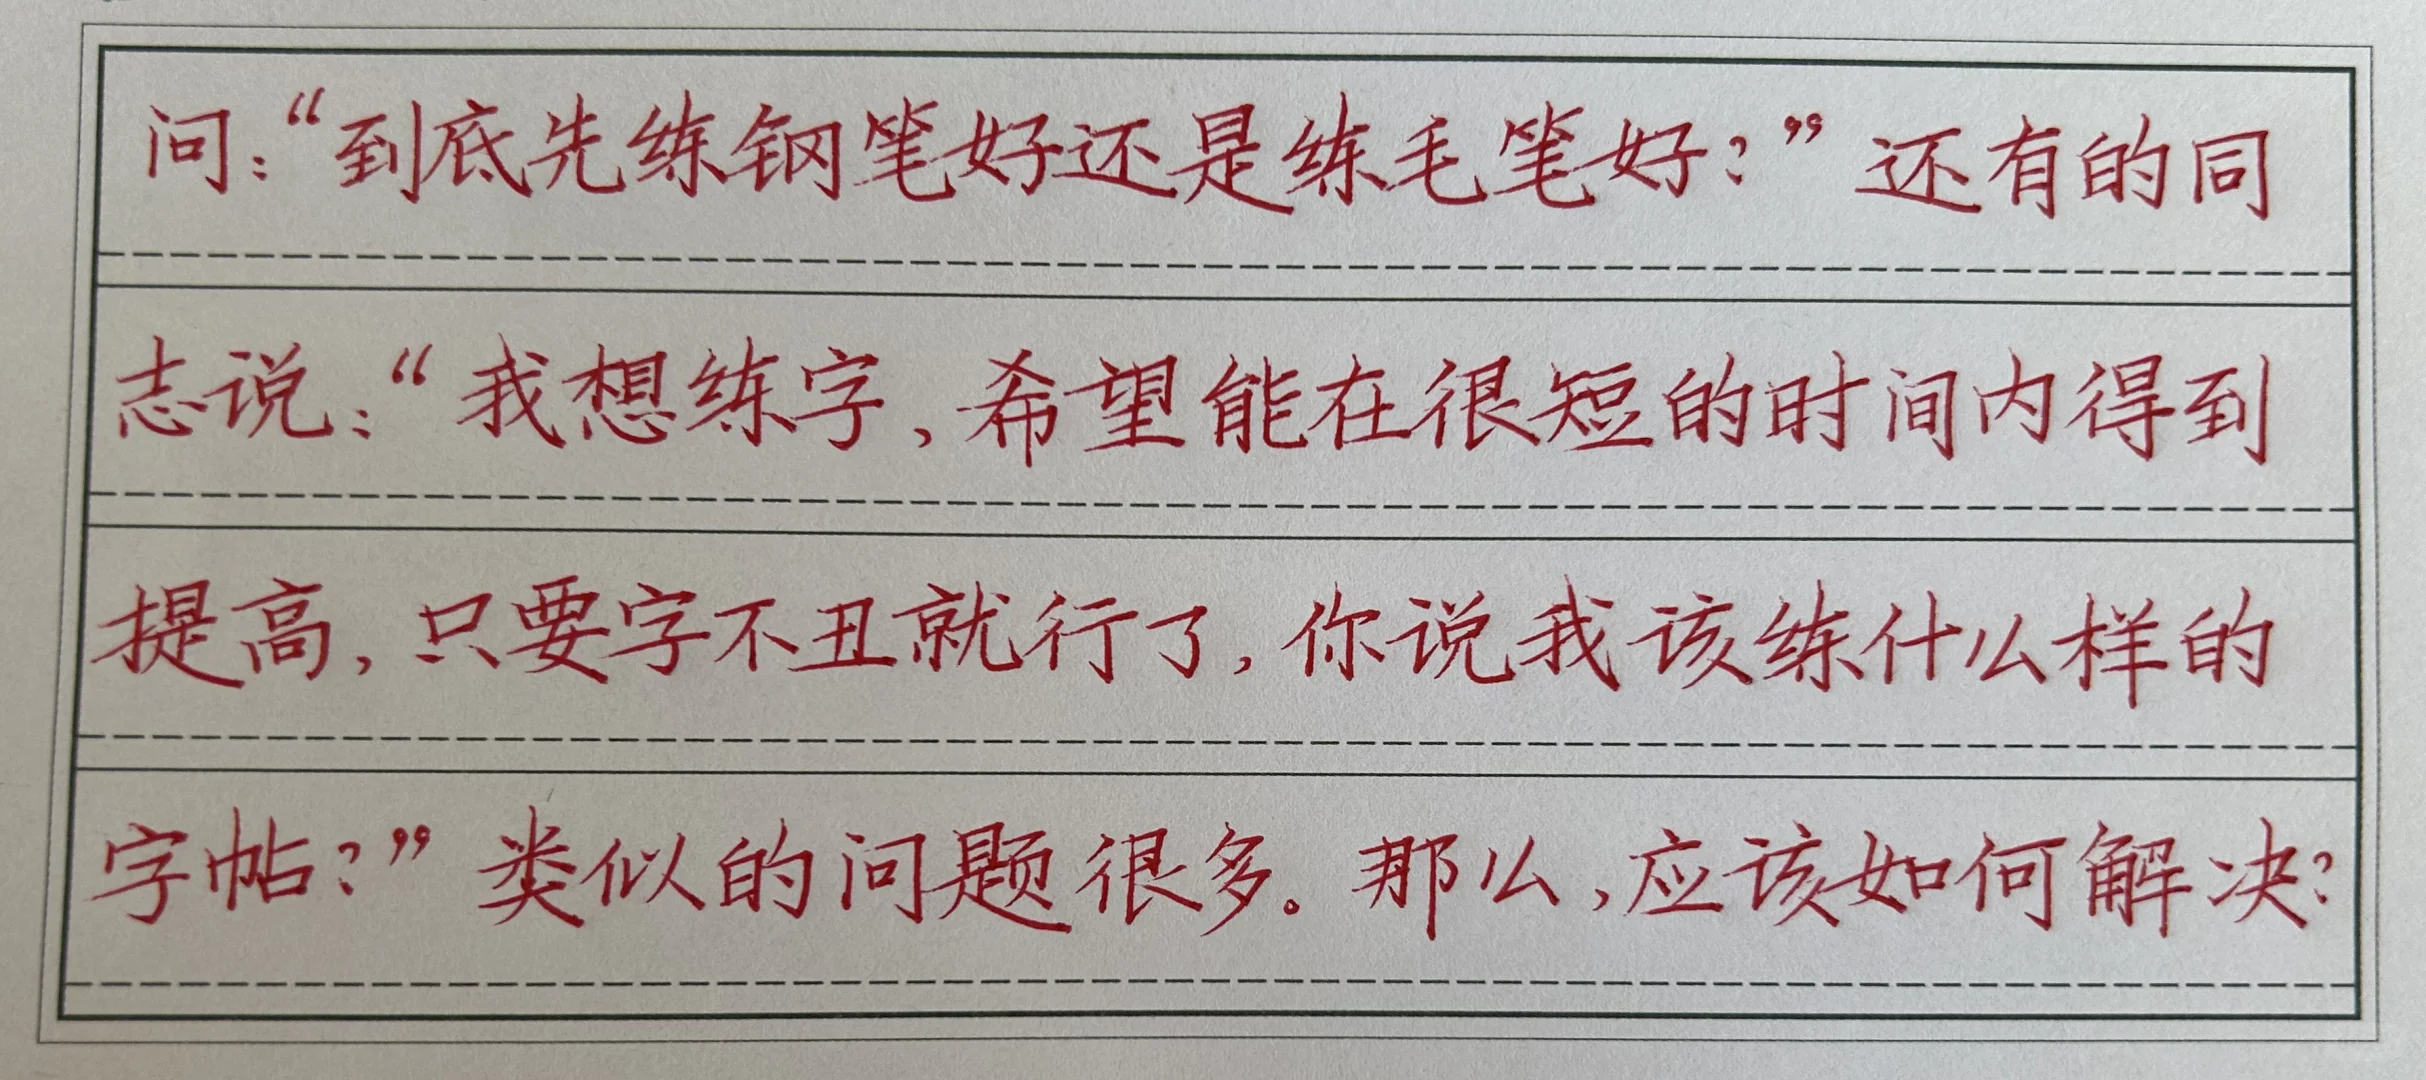 问：“到底先练钢笔好还是练毛笔好？”还有的同
志说：“我想练字，希望能在很短的时间内得到
提高，只要字不丑就行了，你说我该练什么样的
字帖？”类似的问题很多。那么，应该如何解决？